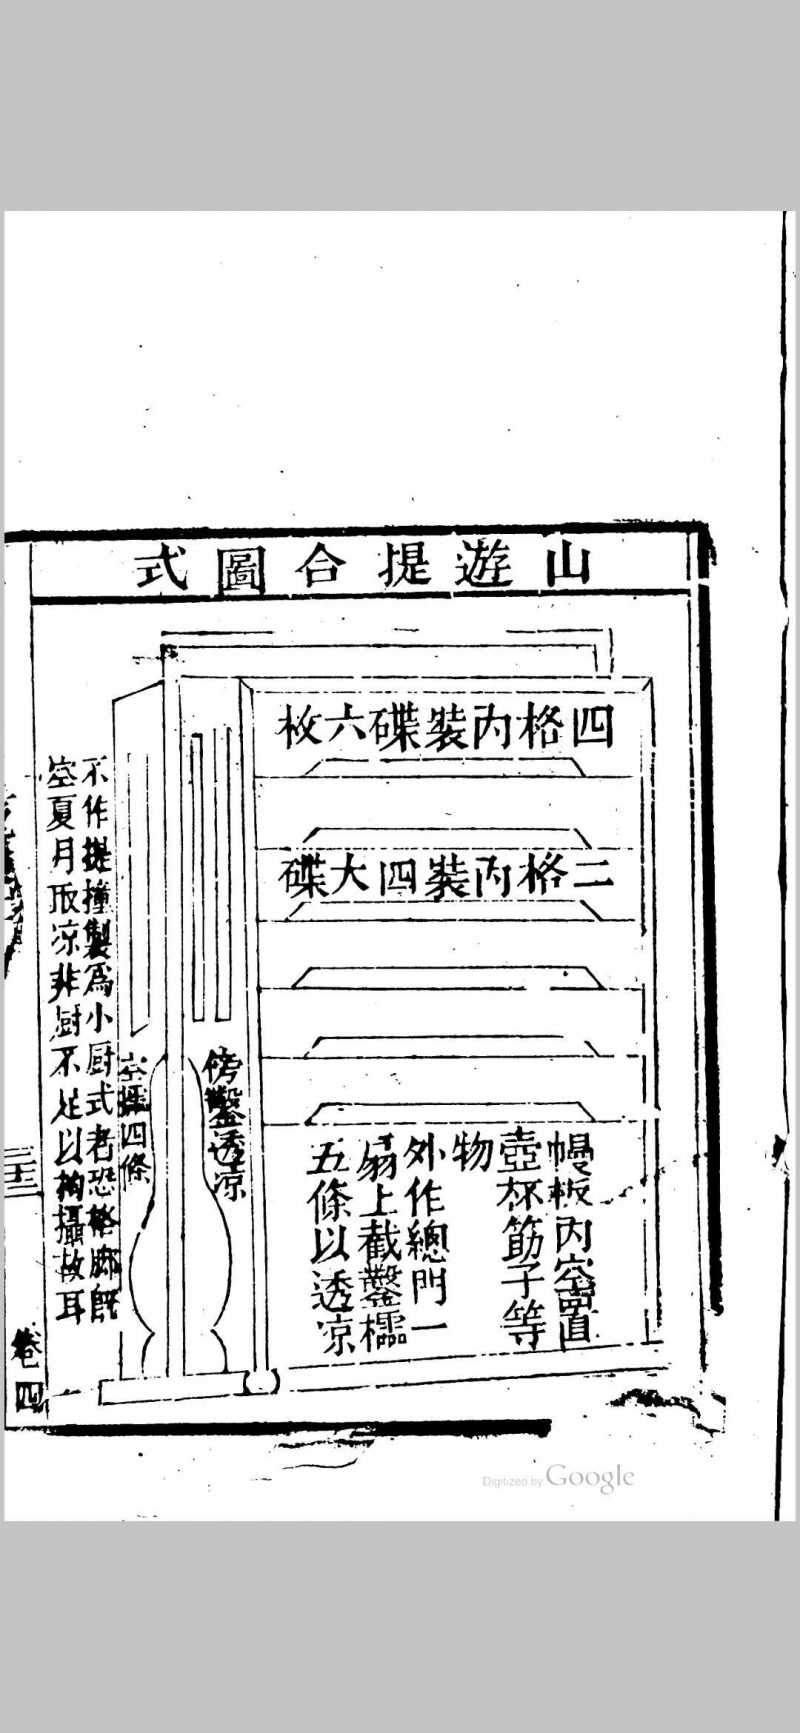 山遊提合圖式
四格內裝碟六枚
二格內裝四大碟
幔板內空置
壺杯筯子等
物
外作總門一
扇上截鑿櫺
五條以透凉
傍鑿透凉
空櫺四條
不作提撞製爲小厨式者恐格廊既
空夏月取凉非厨不足以拘攝故耳
二十三
卷四
Digitized by Google